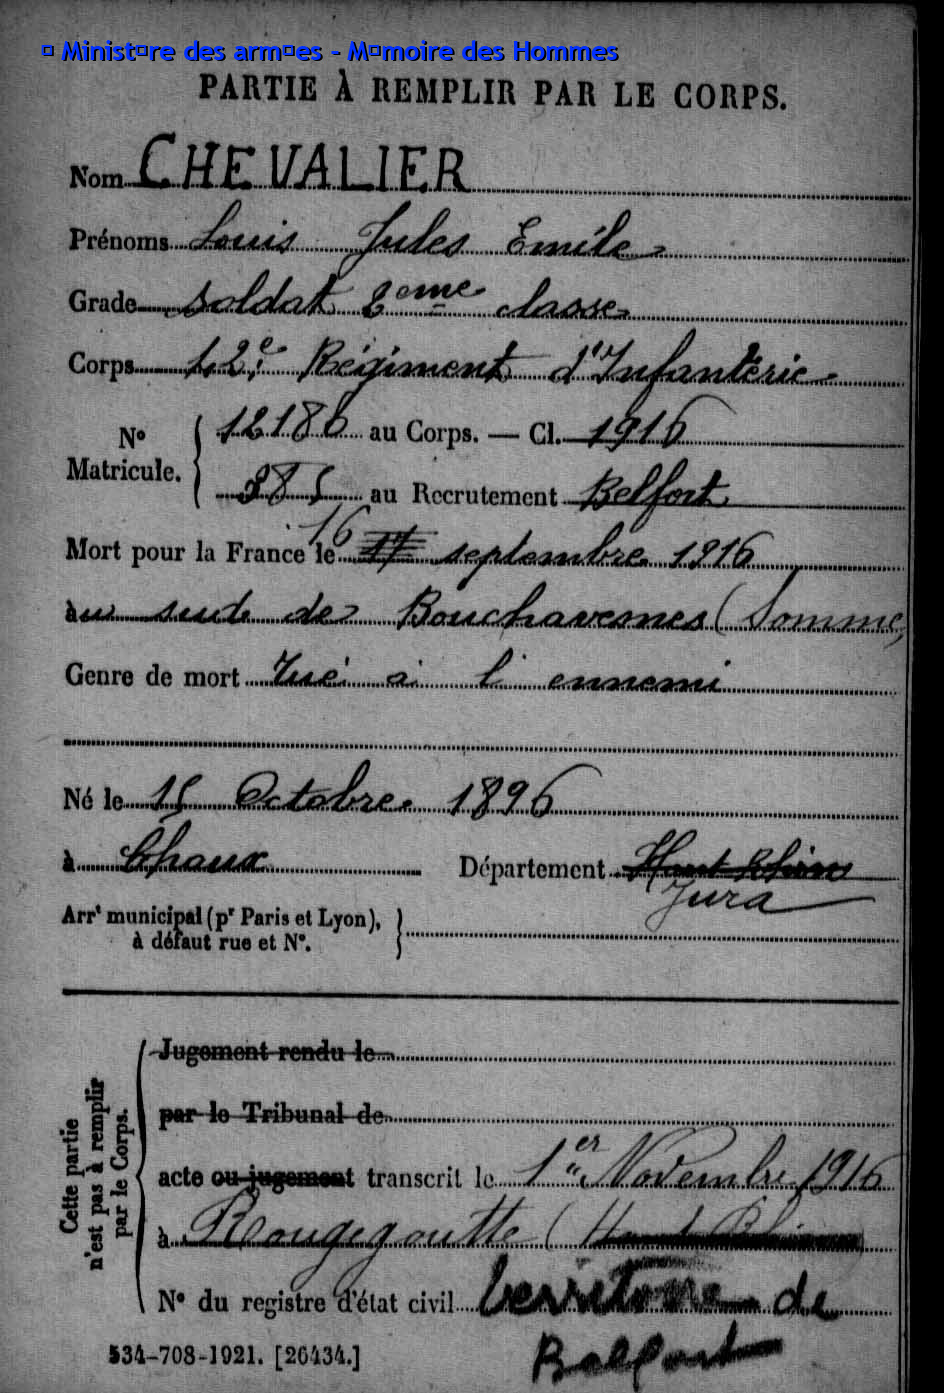 © Ministère des armées - Mémoire des Hommes
PARTIE À REMPLIR PAR LE CORPS.
Nom CHEVALIER
Prénoms Louis Jules Emile
Grade soldat 2eme classe
Corps 42e Régiment d'Infanterie
No Matricule. 12186 au Corps. — Cl. 1916
385 au Recrutement Belfort
Mort pour la France le 16 17 septembre 1916
au sud de Bouchavesnes (Somme)
Genre de mort Tué à l'ennemi
Né le 15 Octobre 1896
à Chaux Département Haut Rhin
Jura
Arrt municipal (pr Paris et Lyon),
à défaut rue et No.
Cette partie
n'est pas à remplir
par le Corps.
Jugement rendu le
par le Tribunal de
acte ou jugement transcrit le 1er Novembre 1916
à Rougegoutte (Haut Rhin
No du registre d'état civil Territoire de
Belfort
534-708-1921. [26434.]